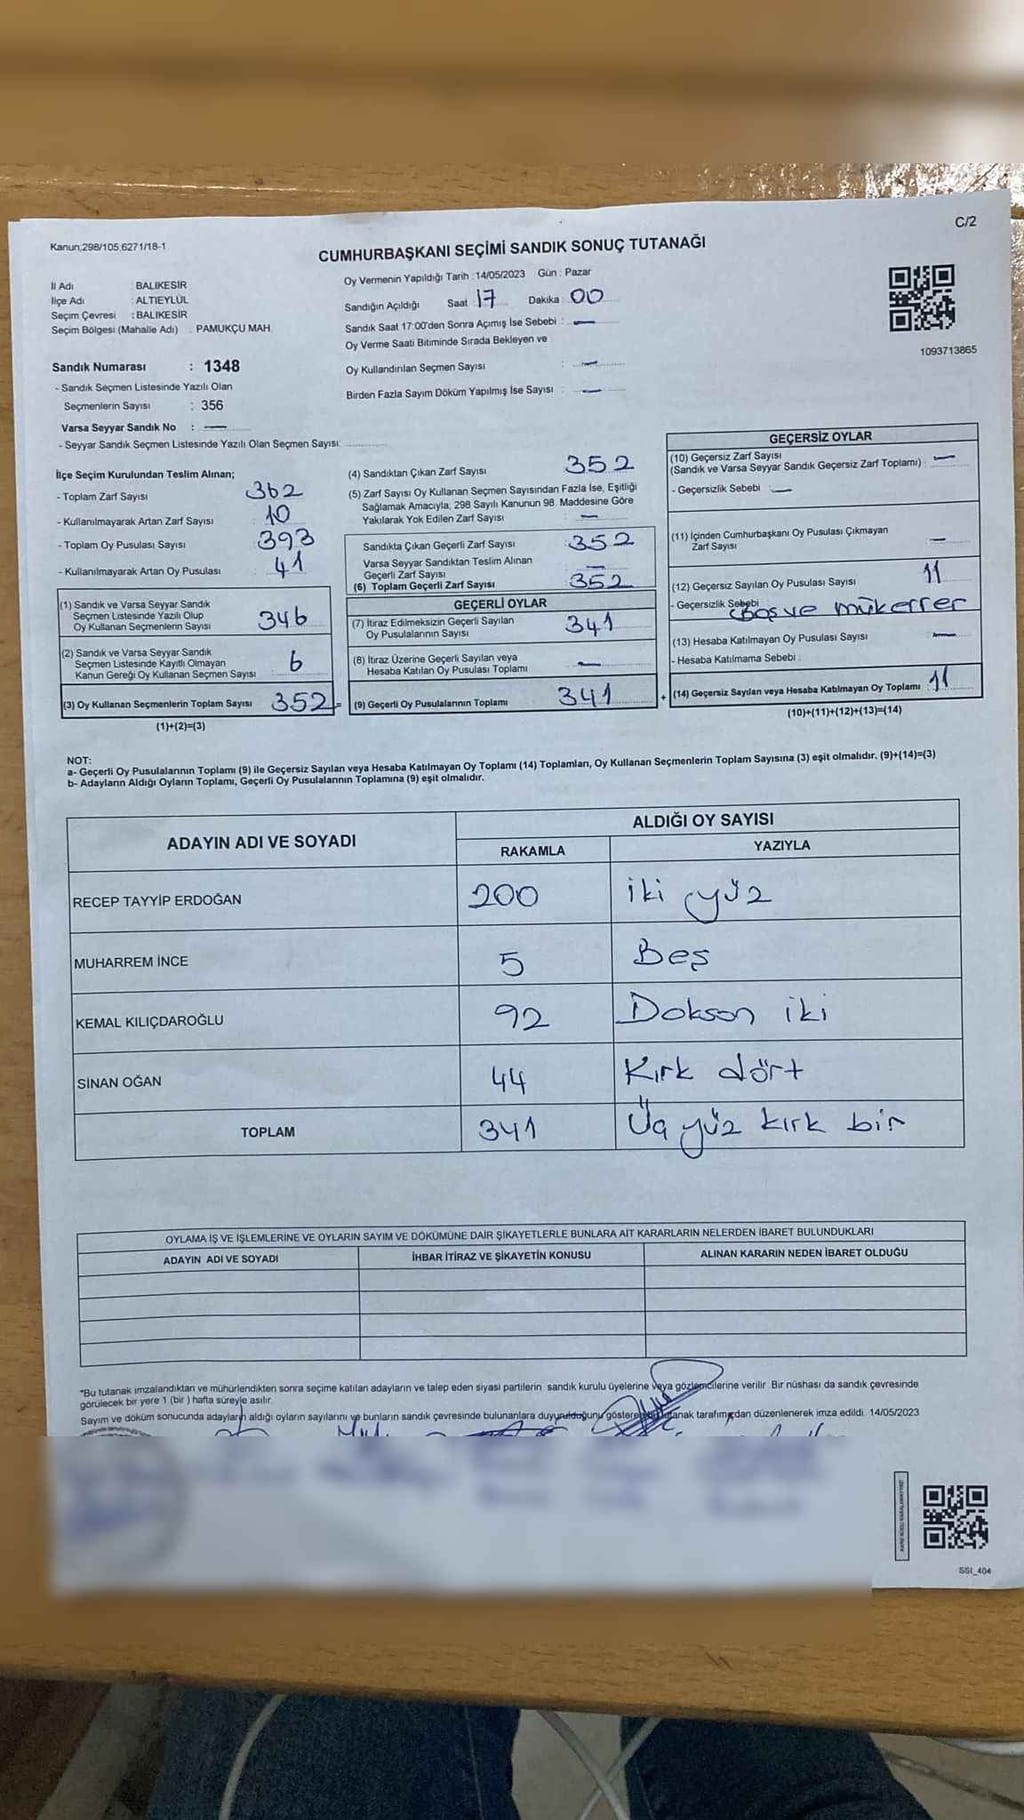 C/2
Kanun;298/105,6271/18-1
CUMHURBAŞKANI SEÇİMİ SANDIK SONUÇ TUTANAĞI
İl Adı : BALIKESİR
İlçe Adı : ALTIEYLÜL
Seçim Çevresi : BALIKESİR
Seçim Bölgesi (Mahalle Adı) : PAMUKÇU MAH.
Oy Vermenin Yapıldığı Tarih : 14/05/2023 Gün : Pazar
Sandığın Açıldığı Saat : 17 Dakika : 00
Sandık Saat 17:00'den Sonra Açımış İse Sebebi : —
Oy Verme Saati Bitiminde Sırada Bekleyen ve
Oy Kullandırılan Seçmen Sayısı : —
Birden Fazla Sayım Döküm Yapılmış İse Sayısı : —
1093713865
Sandık Numarası : 1348
- Sandık Seçmen Listesinde Yazılı Olan
Seçmenlerin Sayısı : 356
Varsa Seyyar Sandık No : —
- Seyyar Sandık Seçmen Listesinde Yazılı Olan Seçmen Sayısı:
İlçe Seçim Kurulundan Teslim Alınan;
- Toplam Zarf Sayısı 362
- Kullanılmayarak Artan Zarf Sayısı 10
- Toplam Oy Pusulası Sayısı 393
- Kullanılmayarak Artan Oy Pusulası 41
(1) Sandık ve Varsa Seyyar Sandık
Seçmen Listesinde Yazılı Olup
Oy Kullanan Seçmenlerin Sayısı 346
(2) Sandık ve Varsa Seyyar Sandık
Seçmen Listesinde Kayıtlı Olmayan
Kanun Gereği Oy Kullanan Seçmen Sayısı 6
(3) Oy Kullanan Seçmenlerin Toplam Sayısı 352 =
(1)+(2)=(3)
(4) Sandıktan Çıkan Zarf Sayısı 352
(5) Zarf Sayısı Oy Kullanan Seçmen Sayısından Fazla İse, Eşitliği
Sağlamak Amacıyla, 298 Sayılı Kanunun 98. Maddesine Göre
Yakılarak Yok Edilen Zarf Sayısı —
Sandıkta Çıkan Geçerli Zarf Sayısı 352
Varsa Seyyar Sandıktan Teslim Alınan
Geçerli Zarf Sayısı —
(6) Toplam Geçerli Zarf Sayısı 352
GEÇERLİ OYLAR
(7) İtiraz Edilmeksizin Geçerli Sayılan
Oy Pusulalarının Sayısı 341
(8) İtiraz Üzerine Geçerli Sayılan veya
Hesaba Katılan Oy Pusulası Toplamı —
(9) Geçerli Oy Pusulalarının Toplamı 341 +
GEÇERSİZ OYLAR
(10) Geçersiz Zarf Sayısı
(Sandık ve Varsa Seyyar Sandık Geçersiz Zarf Toplamı) : —
- Geçersizlik Sebebi : —
(11) İçinden Cumhurbaşkanı Oy Pusulası Çıkmayan
Zarf Sayısı —
(12) Geçersiz Sayılan Oy Pusulası Sayısı 11
- Geçersizlik Sebebi : Boş ve mükerrer
(13) Hesaba Katılmayan Oy Pusulası Sayısı —
- Hesaba Katılmama Sebebi :
(14) Geçersiz Sayılan veya Hesaba Katılmayan Oy Toplamı 11
(10)+(11)+(12)+(13)=(14)
NOT:
a- Geçerli Oy Pusulalarının Toplamı (9) ile Geçersiz Sayılan veya Hesaba Katılmayan Oy Toplamı (14) Toplamları, Oy Kullanan Seçmenlerin Toplam Sayısına (3) eşit olmalıdır. (9)+(14)=(3)
b- Adayların Aldığı Oyların Toplamı, Geçerli Oy Pusulalarının Toplamına (9) eşit olmalıdır.
ADAYIN ADI VE SOYADI ALDIĞI OY SAYISI
RAKAMLA YAZIYLA
RECEP TAYYİP ERDOĞAN 200 iki yüz
MUHARREM İNCE 5 Beş
KEMAL KILIÇDAROĞLU 92 Dokson iki
SİNAN OĞAN 44 Kırk dört
TOPLAM 341 Üç yüz kırk bir
OYLAMA İŞ VE İŞLEMLERİNE VE OYLARIN SAYIM VE DÖKÜMÜNE DAİR ŞİKAYETLERLE BUNLARA AİT KARARLARIN NELERDEN İBARET BULUNDUKLARI
ADAYIN ADI VE SOYADI İHBAR İTİRAZ VE ŞİKAYETİN KONUSU ALINAN KARARIN NEDEN İBARET OLDUĞU
*Bu tutanak imzalandıktan ve mühürlendikten sonra seçime katılan adayların ve talep eden siyasi partilerin sandık kurulu üyelerine veya gözlemcilerine verilir. Bir nüshası da sandık çevresinde
görülecek bir yere 1 (bir ) hafta süreyle asılır.
Sayım ve döküm sonucunda adayların aldığı oyların sayılarını ve bunların sandık çevresinde bulunanlara duyurulduğunu gösteren tutanak tarafımızdan düzenlenerek imza edildi. 14/05/2023
SSI_404